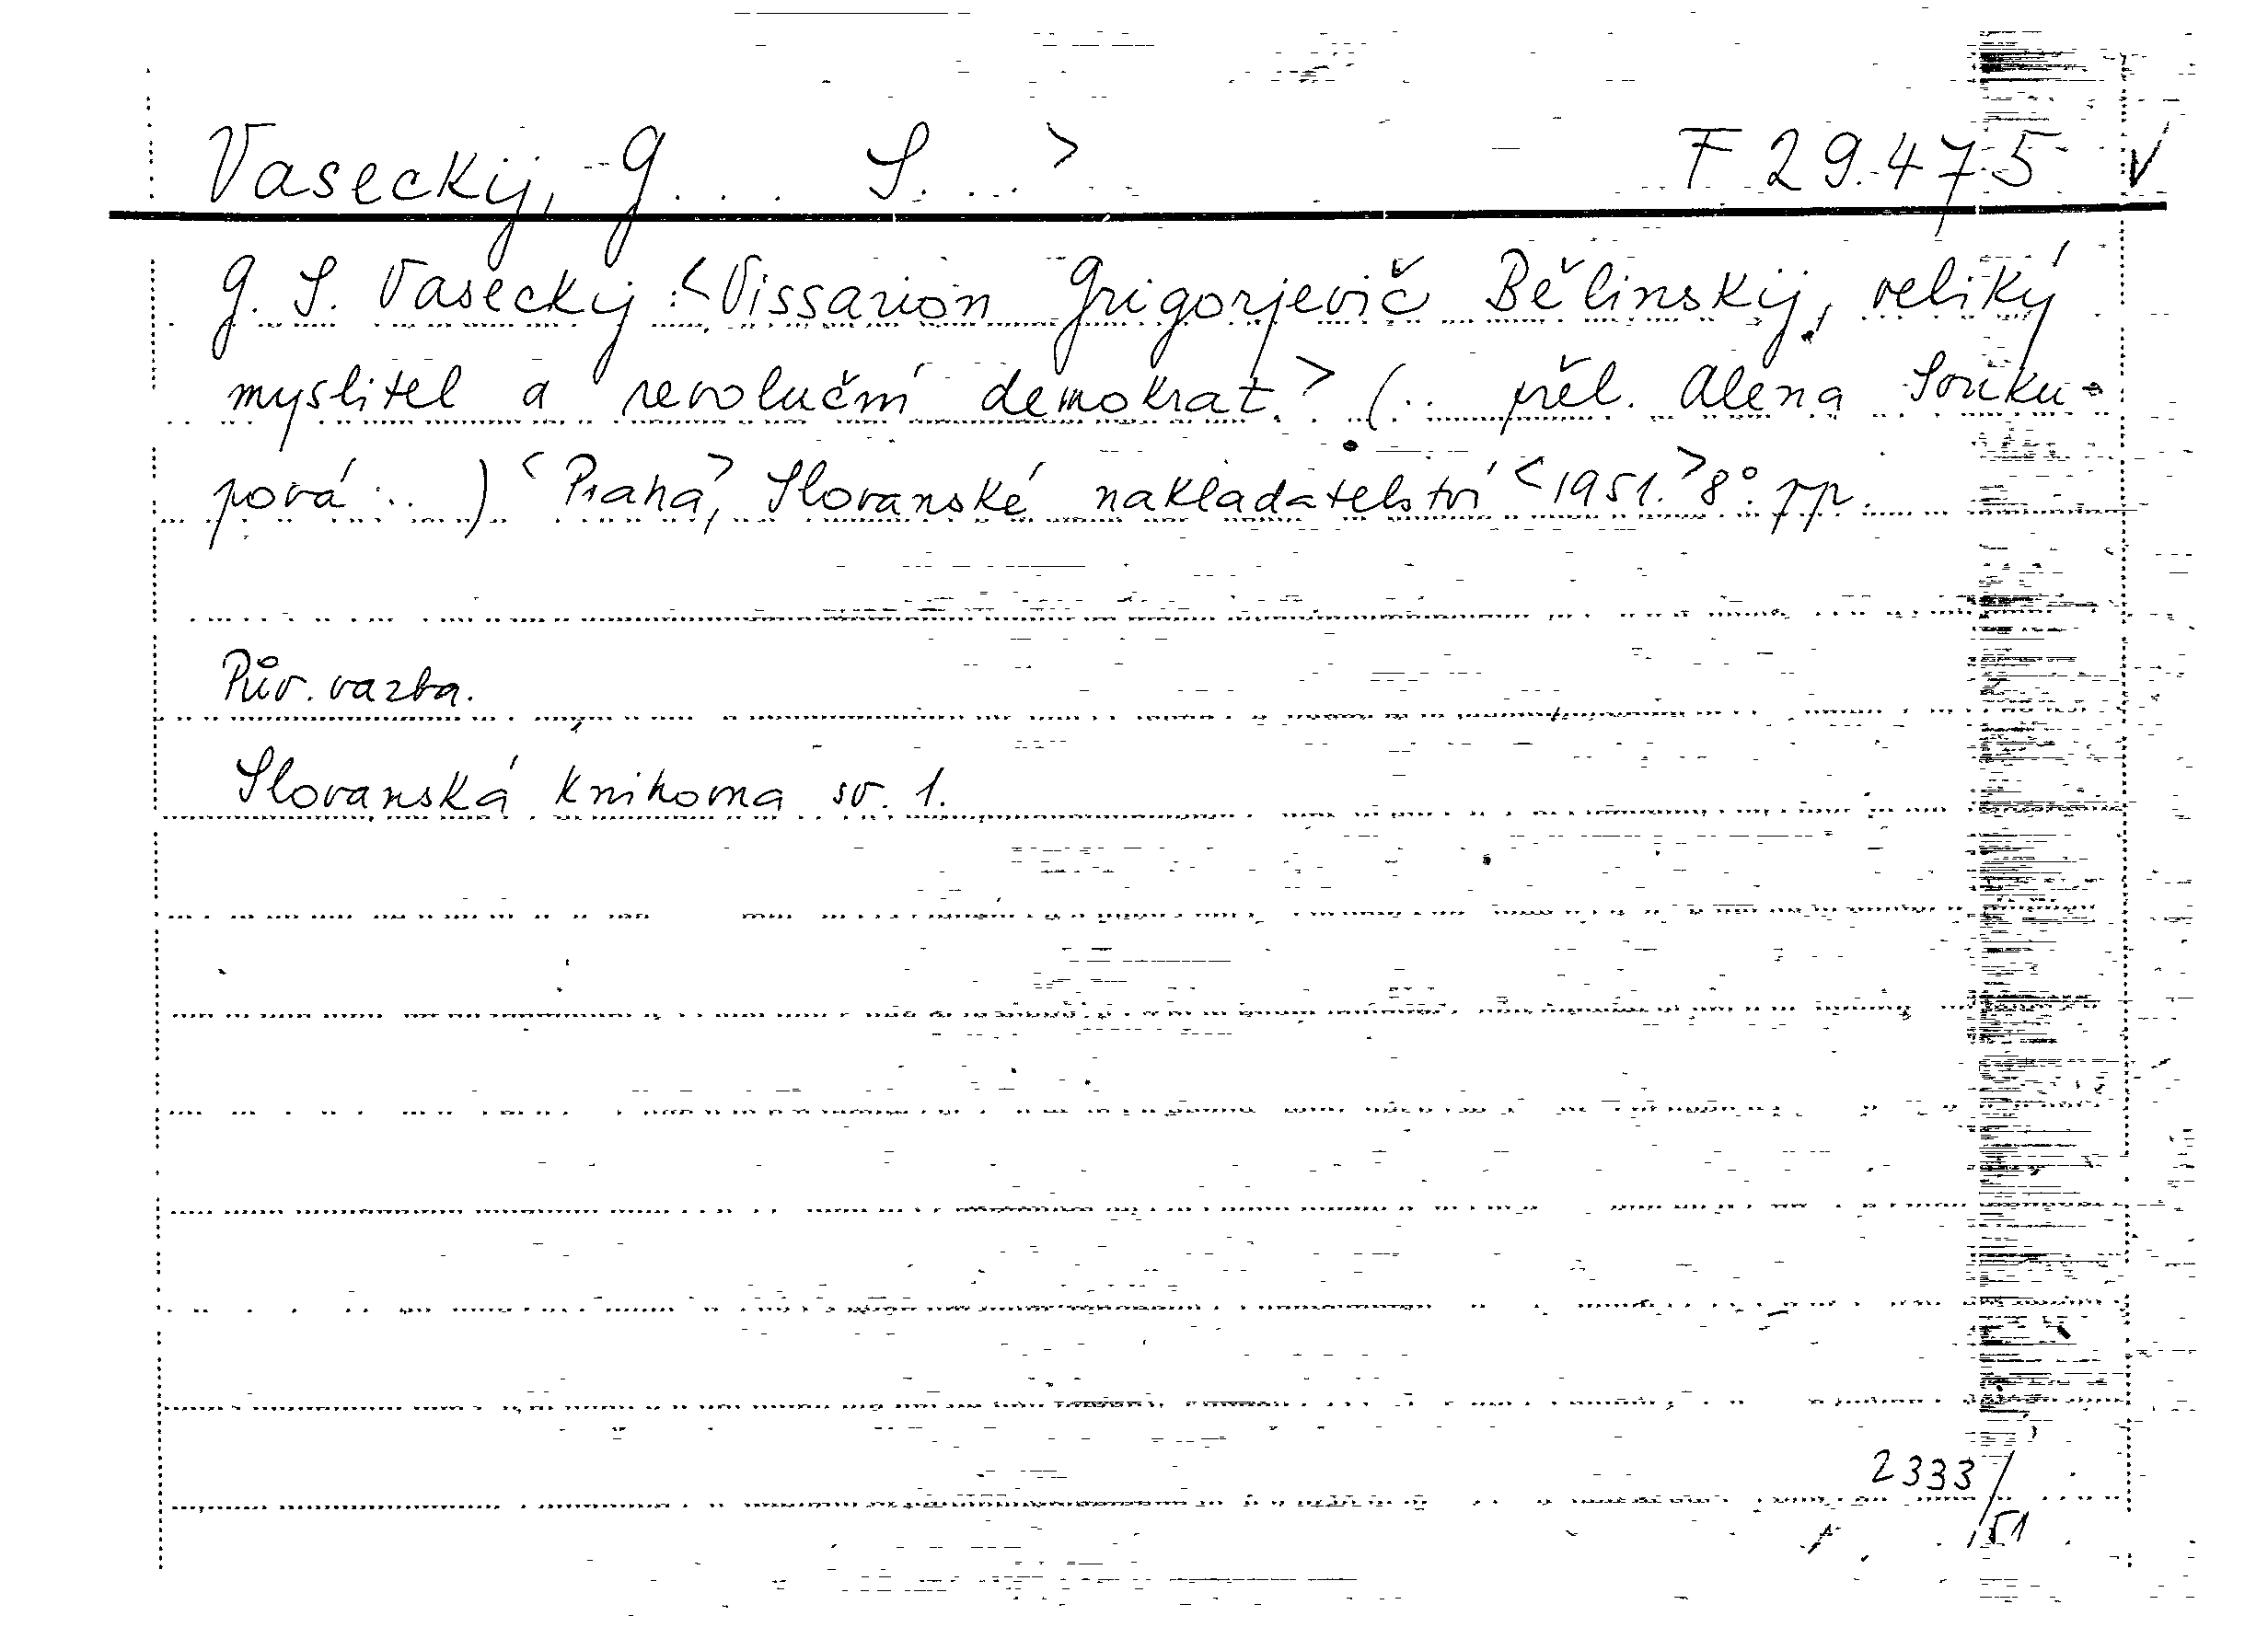 Vaseckij, G... S...> F 29.475 √
G. S. Vaseckij: <Vissarion Grigorjevič Bělinskij, veliký
myslitel a revoluční demokrat.> (.. přel. Alena Souku-
pová ..) <Praha>, Slovanské nakladatelství <1951.> 8°. pp.
Pův. vazba.
Slovanská knihovna sv. 1.
2333/51